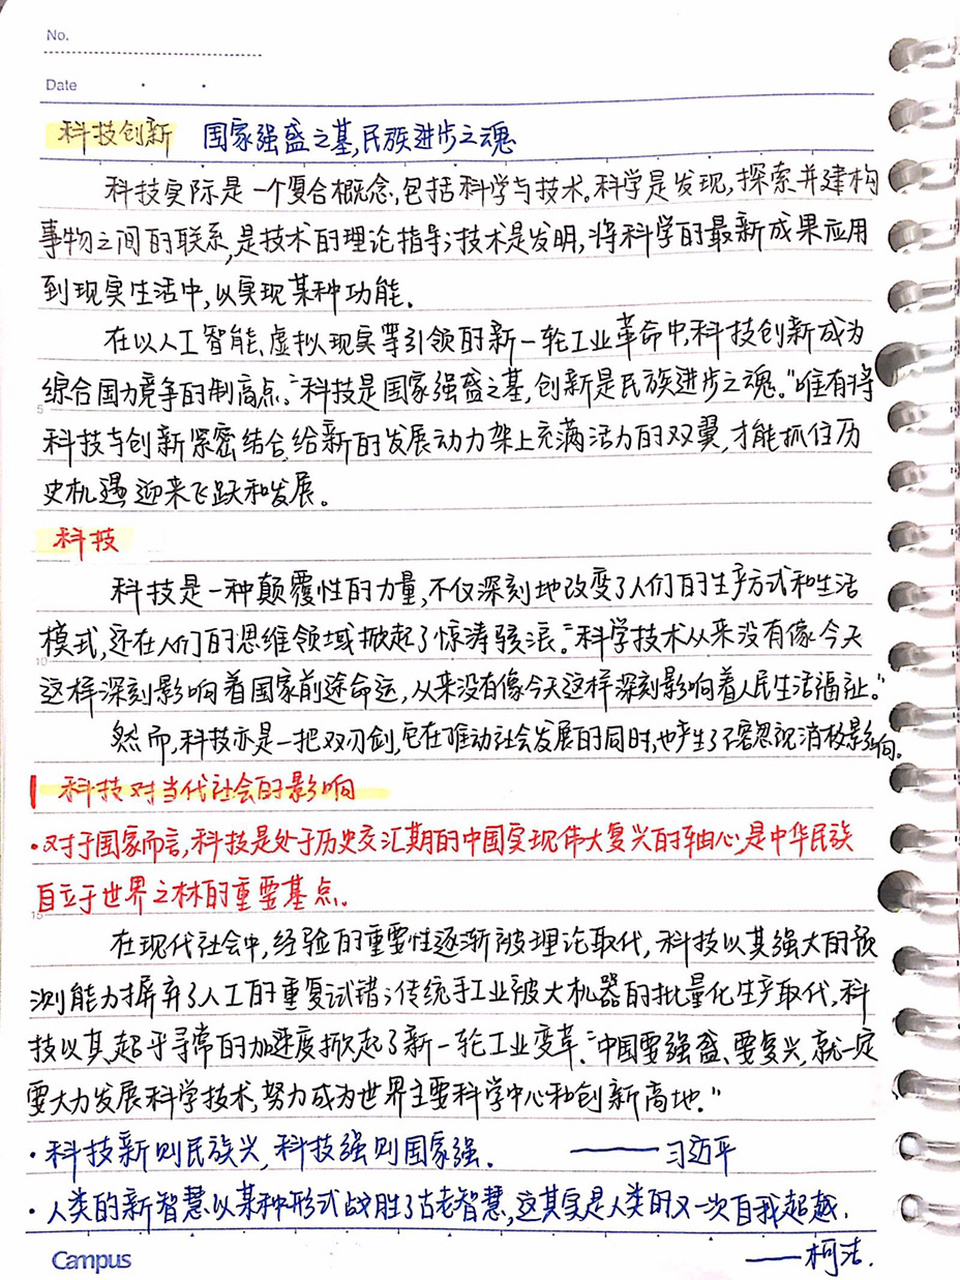 No.
Date
科技创新 国家强盛之基,民族进步之魂
科技实际是一个复合概念,包括科学与技术。科学是发现,探索并建构
事物之间的联系,是技术的理论指导;技术是发明,将科学的最新成果应用
到现实生活中,以实现某种功能.
在以人工智能、虚拟现实等引领的新一轮工业革命中,科技创新成为
综合国力竞争的制高点,“科技是国家强盛之基,创新是民族进步之魂。”唯有将
5
科技与创新紧密结合,给新的发展动力架上充满活力的双翼,才能抓住历
史机遇,迎来飞跃和发展。
科技
科技是一种颠覆性的力量,不仅深刻地改变了人们的生产方式和生活
模式,还在人们的思维领域掀起了惊涛骇浪。“科学技术从来没有像今天
10
这样深刻影响着国家前途命运,从来没有像今天这样深刻影响着人民生活福祉。”
然而,科技亦是一把双刃剑,它在推动社会发展的同时,也产生了不容忽视消极影响。
科技对当代社会的影响
·对于国家而言,科技是处于历史交汇期的中国实现伟大复兴的轴心,是中华民族
自立于世界之林的重要基点.
15
在现代社会中,经验的重要性逐渐被理论取代,科技以其强大的预
测能力摒弃了人工的重复试错;传统手工业被大机器的批量化生产取代,科
技以其超乎寻常的加速度掀起了新一轮工业变革.“中国要强盛、要复兴,就一定
要大力发展科学技术,努力成为世界主要科学中心和创新高地.”
·科技新则民族兴,科技强则国家强. ——习近平
·人类的新智慧以某种形式战胜了古老智慧,这其实是人类的又一次自我超越.
Campus
——柯洁.